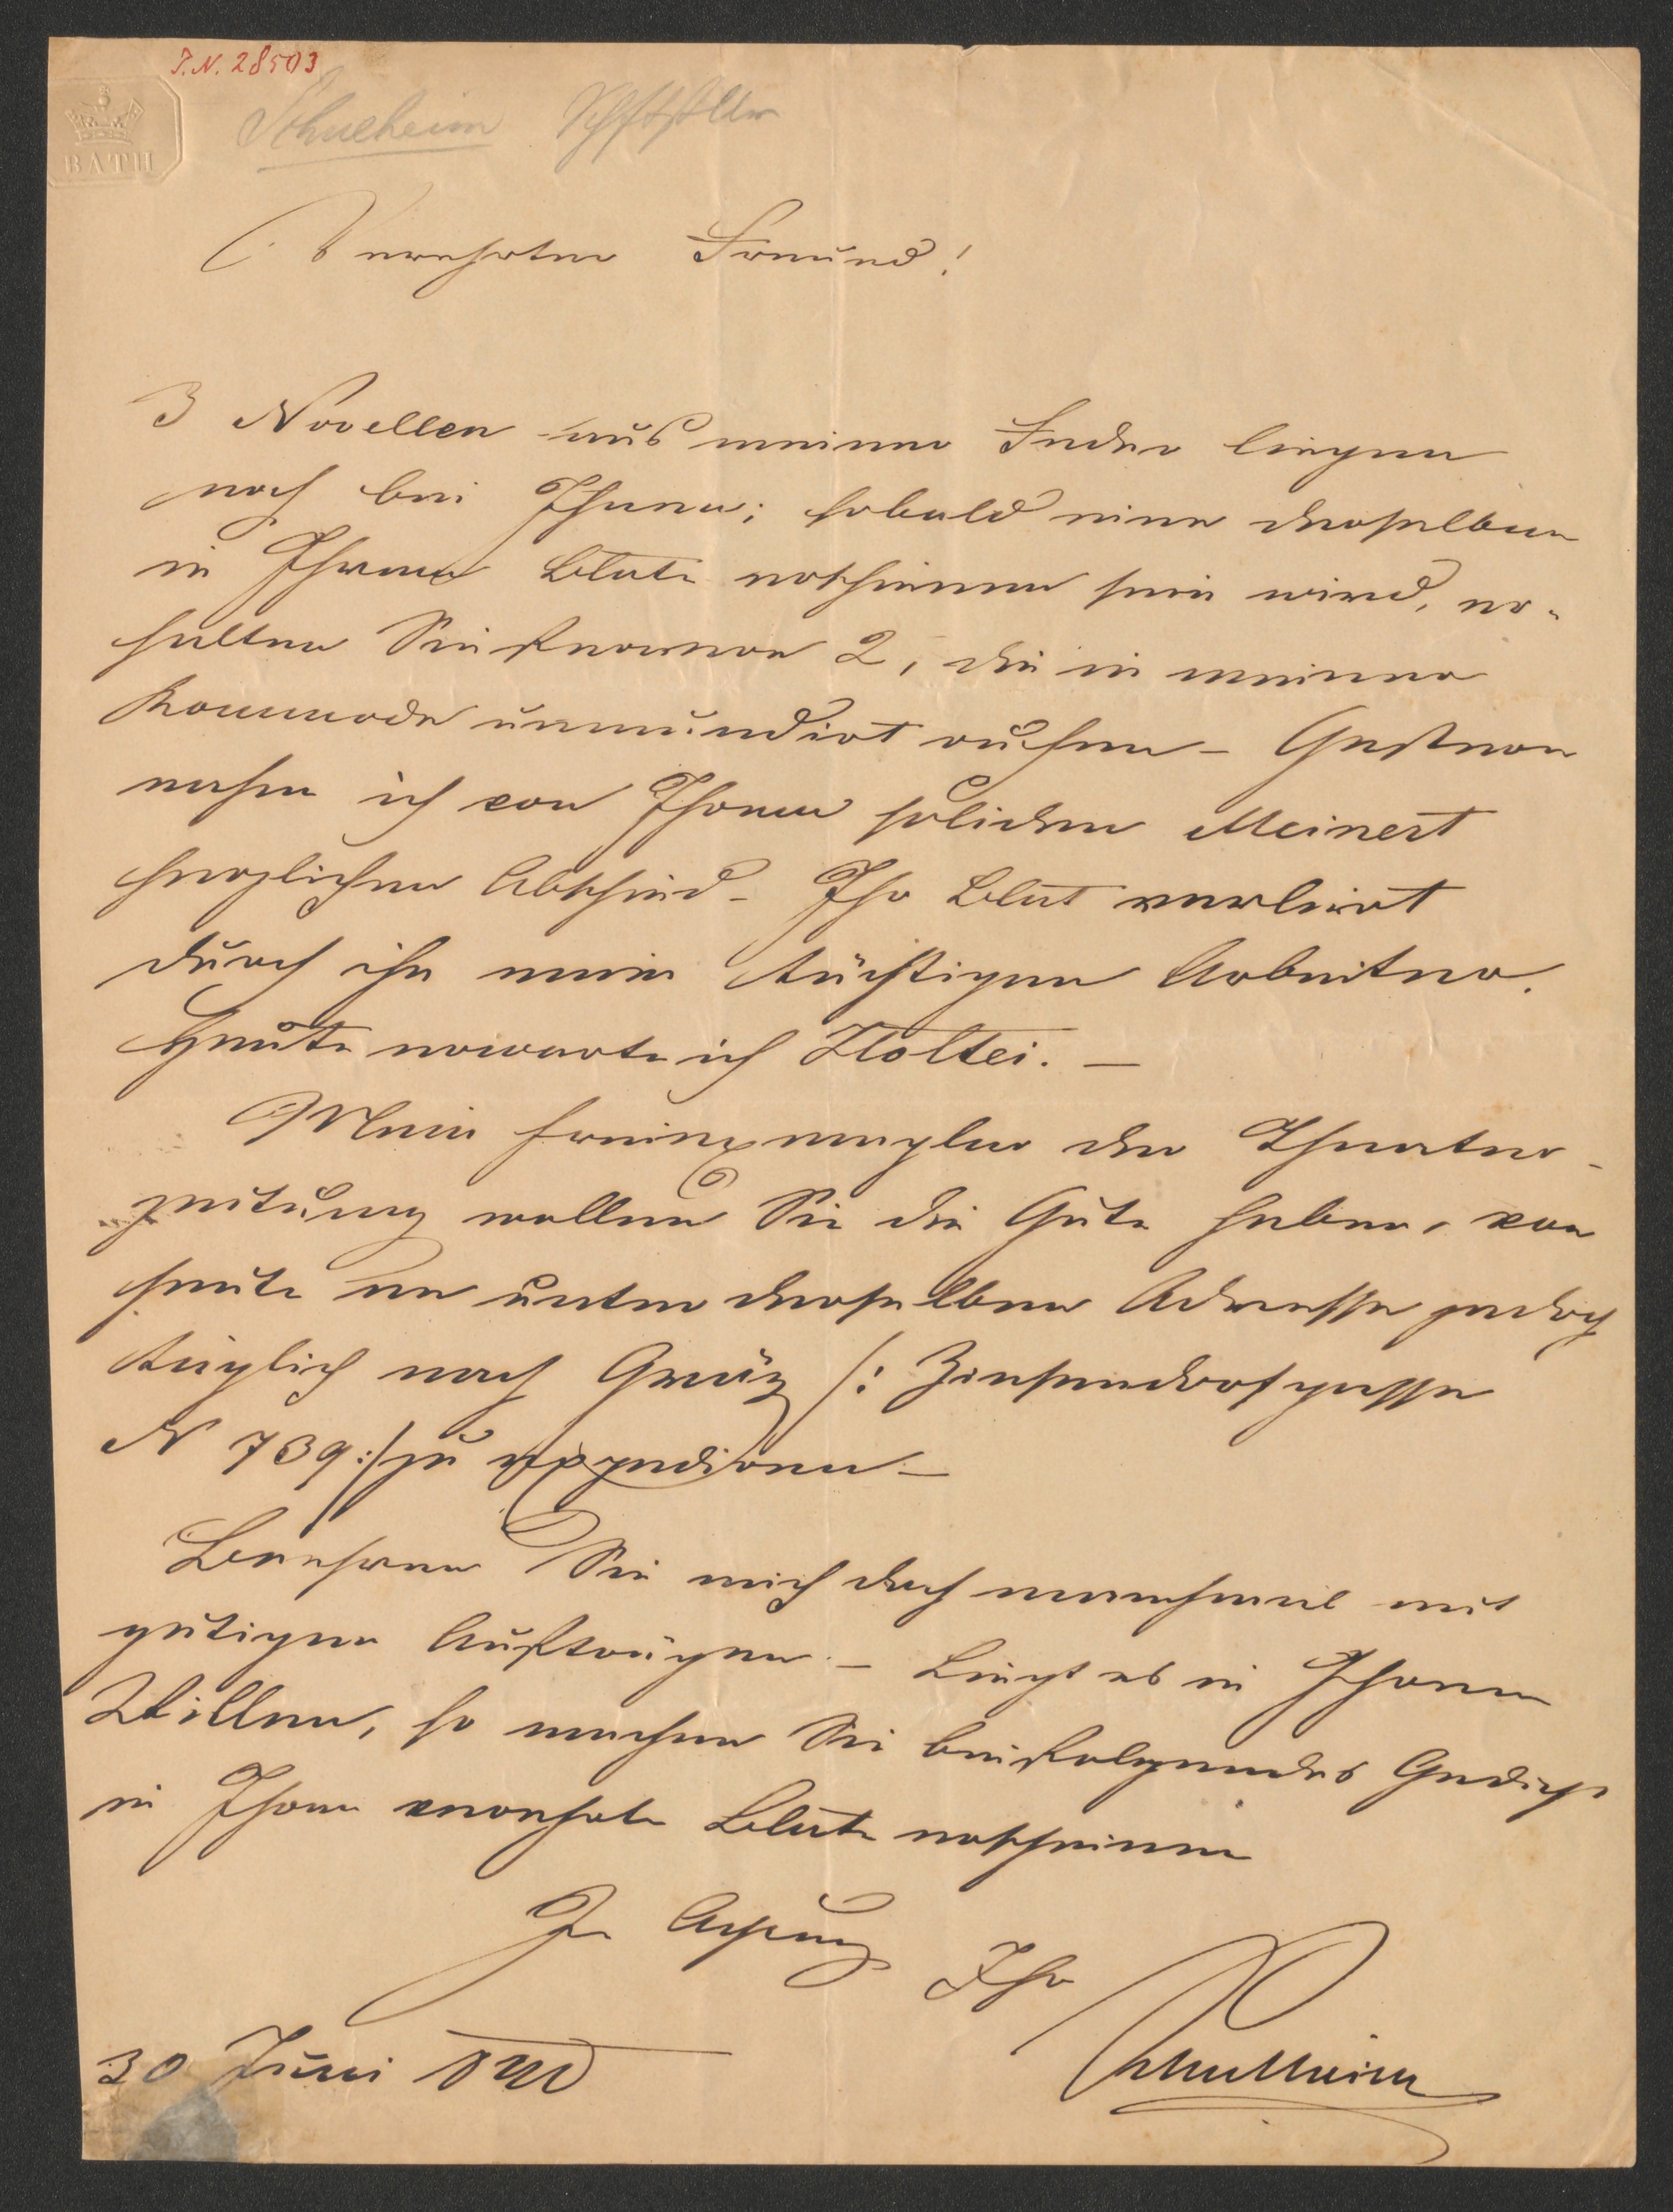 I.N. 28503
BATH
Schulheim Schftstller
Verehrter Freund!
3 Novellen aus meiner Feder liegen
noch bei Ihnen; sobald eine derselben
in Ihrem Blatte erschienen sein wird, er-
halten Sie Fernere 2, die in meiner
Kommode unmundirt ruhen – Gestern
nahm ich von Ihrem soliden Meinert
herzlichen Abschied – Ihr Blat verliert
durch ihn einen tüchtigen Arbeiter.
Heute erwarte ich Holtei. —
Mein Freiexemplar der Theater-
zeitung wollen Sie die Güte haben, von
heute an unter derselben Adresse jedoch
täglich nach Graz /: Zinsendorfgasse
N 739 :/ zu expediren –
Beehren Sie mich doch manchmal mit
gütigen Aufträgen – Liegt es in Ihrem
Willen, so machen Sie beifolgendes Gedicht
in Ihrem verehrten Blatte erscheinen
In Achtung
Ihr
Schulheim
30 Juni